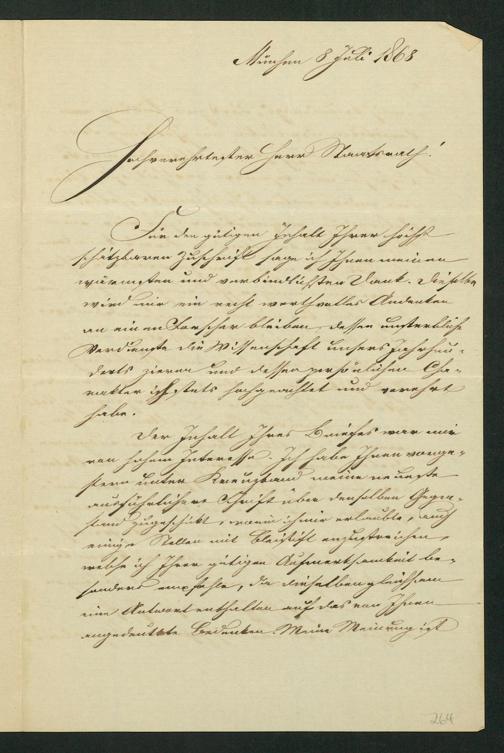 München 8 Juli 1868
Hochverehrtester Herr Staatsrath!
Für den gütigen Inhalt Ihrer höchst
schätzbaren Zuschrift sage ich Ihnen meinen
wärmsten und verbindlichsten Dank. Dieselbe
wird mir ein recht werthvolles Andenken
an einen Forscher bleiben, dessen unsterbliche
Verdienste die Wissenschaft unsers Jahrhun-
derts zieren und dessen persönlichen Cha-
rakter ich stets hochgeachtet und verehrt
habe.
Der Inhalt Ihres Briefes war mir
von hohem Interesse. Ich habe Ihnen vorge-
stern unter Kreuzband meine neueste
ausführlichere Schrift über denselben Gegen-
stand zugeschikt, worin ich mir erlaubte, auch
einige Stellen mit Bleistift anzustreichen,
welche ich Ihrer gütigen Aufmerksamkeit be-
sonders empfehle, da dieselben gleichsam
eine Antwort enthalten auf das von Ihnen
angedeutete Bedenken. Meine Meinung ist
264